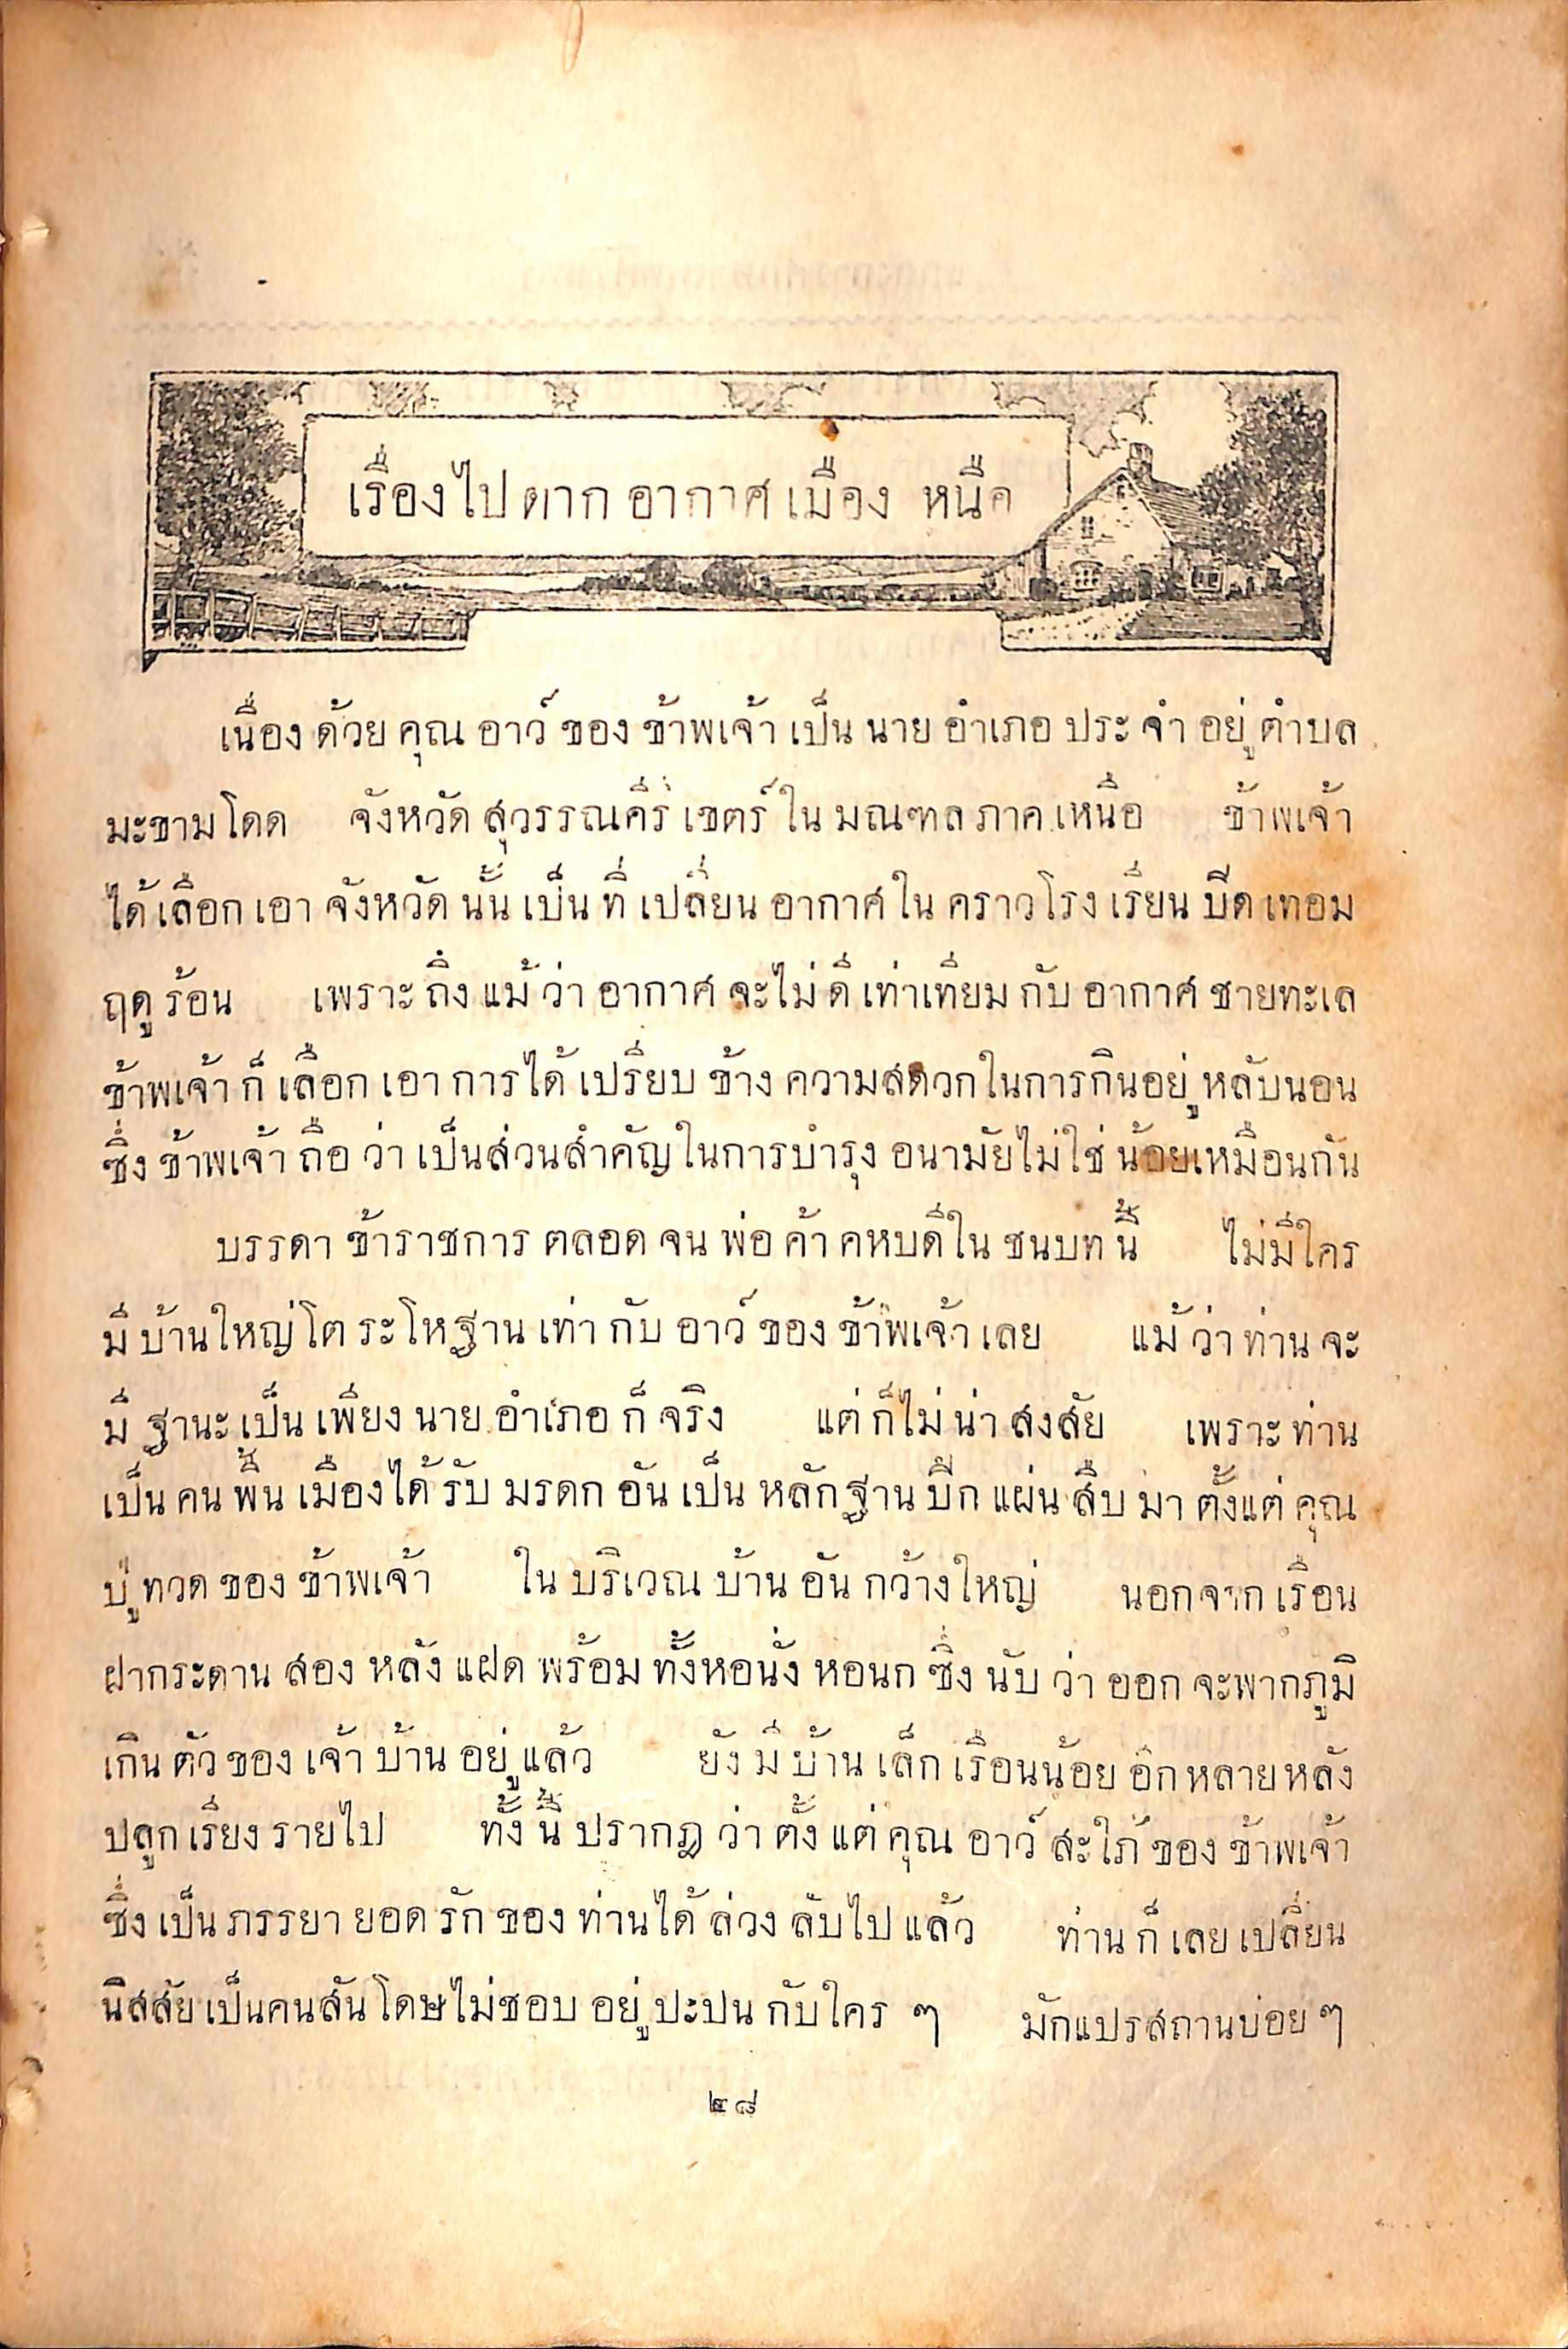 เรื่องไปตากอากาศเมืองหนือ
เนื่องด้วยคุณอาว์ของข้าพเจ้าเป็นนายอำเภอประจำอยู่ตำบล
มะขามโดด จังหวัดสุวรรณคีรีเขตร์ในมณฑลภาคเหนือ ข้าพเจ้า
ได้เลือกเอาจังหวัดนั้นเป็นที่เปลี่ยนอากาศในคราวโรงเรียนปีดเทอม
ฤดูร้อน เพราะถึงแม้ว่าอากาศจะไม่ดีเท่าเทียมกับอากาศชายทะเล
ข้าพเจ้าก็เลือกเอาการได้เปรียบข้างความสดวกในการกินอยู่หลับนอน
ซึ่งข้าพเจ้าถือว่าเป็นส่วนสำคัญในการบำรุงอนามัยไม่ใช่น้อยเหมือนกัน
บรรดาข้าราชการตลอดจนพ่อค้าคหบดีในชนบทนี้ ไม่มีใคร
มีบ้านใหญ่โตระโหฐานเท่ากับอาว์ของข้าพเจ้าเลย แม้ว่าท่านจะ
มีฐานะเป็นเพียงนายอำเภอก็จริง แต่ก็ไม่น่าสงสัย เพราะท่าน
เป็นคนพื้นเมืองได้รับมรดกอันเป็นหลักฐานปึกแผ่นสืบมาตั้งแต่คุณ
ปู่ทวดของข้าพเจ้า ในบริเวณบ้านอันกว้างใหญ่ นอกจากเรือน
ฝากระดานสองหลังแฝดพร้อมทั้งหอนั่งหอนกซึ่งนับว่าออกจะพากภูมิ
เกินตัวของเจ้าบ้านอยู่แล้ว ยังมีบ้านเล็กเรือนน้อยอีกหลายหลัง
ปลูกเรียงรายไป ทั้งนี้ปรากฎว่าตั้งแต่คุณอาว์สะใภ้ของข้าพเจ้า
ซึ่งเป็นภรรยายอดรักของท่านได้ล่วงลับไปแล้ว ท่านก็เลยเปลี่ยน
นิสสัยเป็นคนสันโดษไม่ชอบอยู่ปะปนกับใคร ๆ มักแปรสถานบ่อยๆ
๒๘